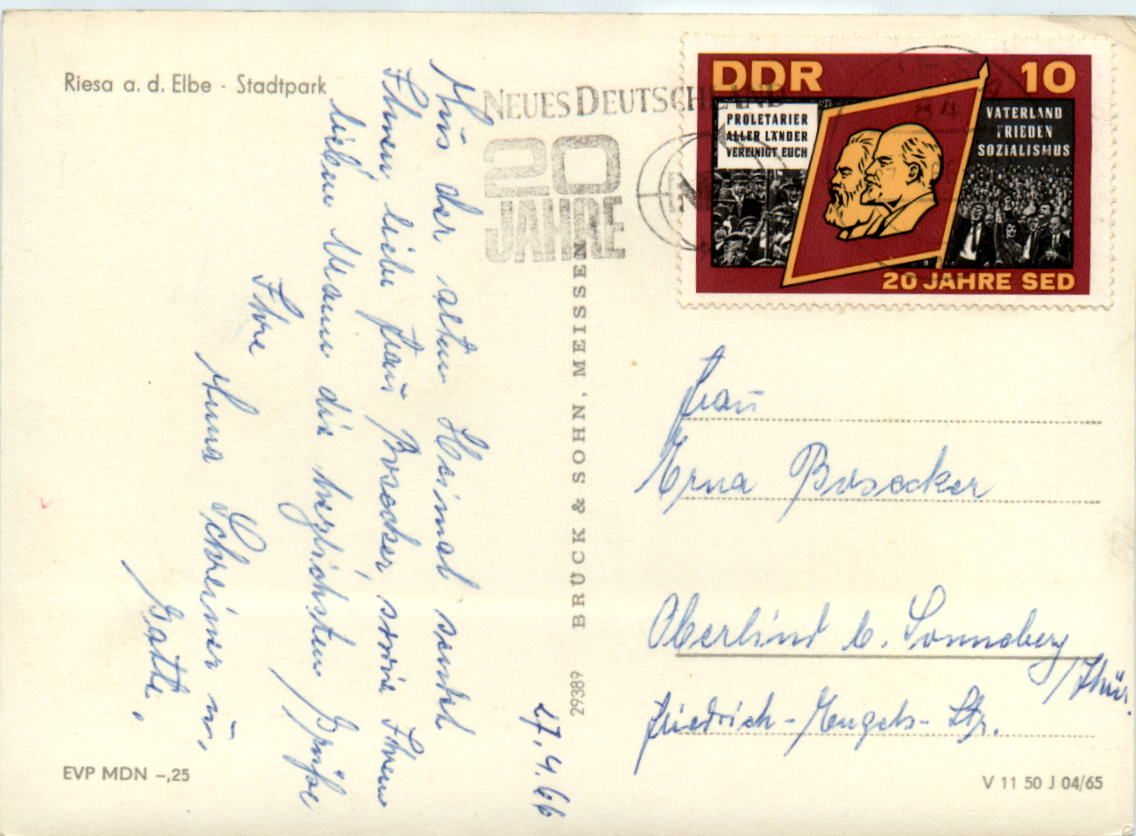 Riesa a. d. Elbe · Stadtpark
NEUES DEUTSCHLAND
20
JAHRE
DDR 10
PROLETARIER
ALLER LÄNDER
VEREINIGT EUCH
VATERLAND
FRIEDEN
SOZIALISMUS
20 JAHRE SED
Aus der alten Heimat sendet
Ihnen liebe Frau Bosecker sowie Ihrem
lieben Mann die herzlichsten Grüße
Ihre
Anna Schreiner u.
Gatte.
27.4.66
BRÜCK & SOHN, MEISSEN
29389
Frau
Erna Bosecker
Oberlind b. Sonneberg
/Thür.
Friedrich-Engels-Str.
EVP MDN –,25
V 11 50 J 04/65